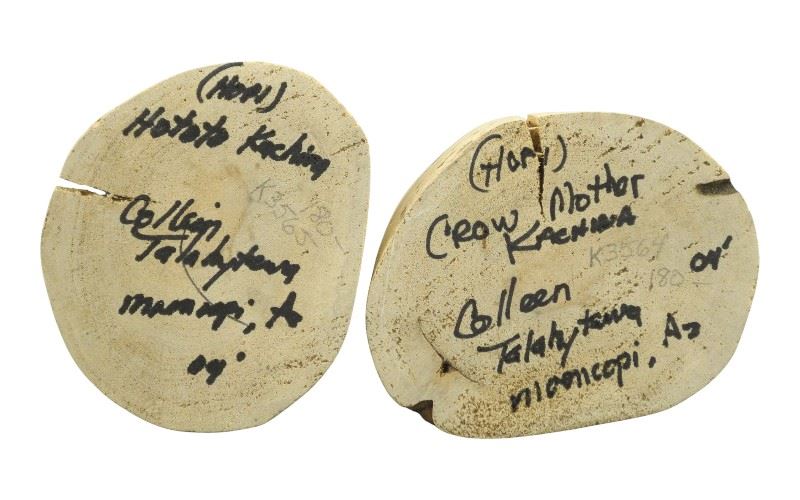 (HOPI)
Hototo Kachina
K3565
180-
Colleen
Talahytewa
moencopi, Az
04'
(HOPI)
CROW Mother
KACHINA
K3564
180-
04'
Colleen
Talahytewa
moencopi, Az